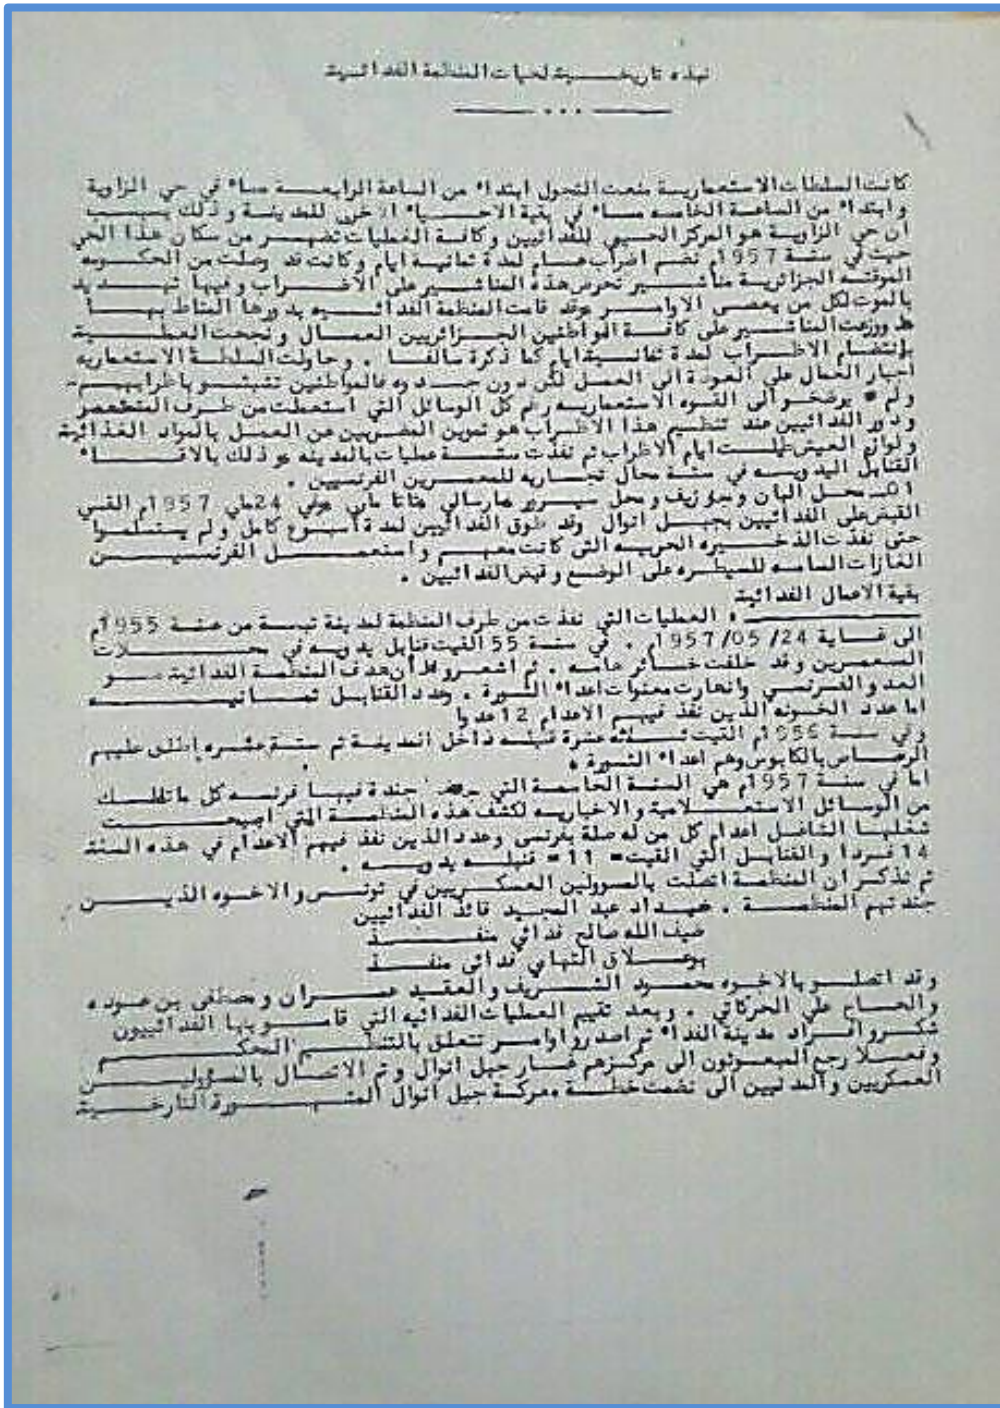 نبذه تاريخسية لحيات المنظمة الفدائية
كانت السلطات الاستعمارية منعت التجول ابتداء من الساعة الرابعة مساء في حي الزاوية
وابتداء من الساعة الخامسه مساء في بقية الاحياء الاخرى للمدينة وذلك بسبب
ان حي الزاوية هو المركز الحسي للفدائيين وكافة العمليات تضهر من سكان هذا الحي
حيث في سنة 1957م نضم اضراب عام لمدة ثمانيه ايام وكانت قد وصلت من الحكومه
الموقته الجزائرية مناشير تحرض هذه المناشير على الاضراب وفيها تهديد
بالموت لكل من يعصى الاوامر وقد قامت المنظمة الفدائيه بدورها المناط بها
ووزعت المناشير على كافة المواطنين الجزائريين العمال ونجحت العملية
بإنتضام الاظراب لمدة ثمانية ايام كما ذكرة سالفا . وحاولت السلطة الاستعماريه
اجبار العمال على العودة الى العمل لكن دون جدوه فالمواطنين تشبثو باظرابهم
ولم يرضخو الى القوه الاستعماريه رغم كل الوسائل التي استعملت من طرف المستعمر
ودور الفدائيين عند تنظيم هذا الاظراب هو تموين المضربين عن العمل بالمواد الغذائية
ولوازم العيش طيلت ايام الاظراب ثم نفذت ستة عمليات بالمدينه وذلك بالاقاء
القنابل اليدويه في ستة محال تجاريه للمعمرين الفرنسيين .
محل البان وجوزيف ومحل مارسالي 24ماي 1957م القي
القبض على الفدائيين بجبل انوال وقد طوق الفدائيين لمدة أسبوع كامل ولم يستسلموا
حتى نفذت الذخيره الحربيه التي كانت معهم واستعمل الفرنسيين
الغازات السامه للسيطره على الوضع وقبض الفدائيين .
بقية الاعمال الفدائية
العمليات التي نفذت من طرف المنظمة لمدينة تبسة من سنة 1955م
الى غاية 24/05/1957م . في سنة 55 القيت قنابل يدويه في محلات
المعمرين وقد خلفت خسائر هامه . ثم اشعرو أن هدف المنظمة الفدائيه هو
العدو الفرنسي وانهارت معنوات اعداء الثورة . وعدد القنابل ثمانيه
اما عدد الخونه الذين نفذ فيهم الاعدام 12 عدوا
وفي سنة 1956م القيت ثلاثه عشرة قنبله داخل المدينة ثم ستة عشره إطلق عليهم
الرصاص بالكابوس وهم اعداء الثورة .
اما في سنة 1957م هي السنة الحاسمة التي جندة فيها فرنسه كل ماتملك
من الوسائل الاستعلامية والاخباريه لكشف هذه المنظمة التي اصبحت
شغلها الشاغل اعدام كل من له صلة بفرنسى وعدد الذين نفذ فيهم الاعدام في هذه السنة
14 فردا والقنابل التي القيت= 11 = قنبله يدويه .
ثم نذكر ان المنظمة اتصلت بالمسوولين العسكريين في تونس والاخوه الذين
جندتهم المنظمة . عبد المجيد قائد الفدائيين
ضيف الله صالح فدائي منفذ
بوعلاق التهامي فدائي منفذ
وقد اتصلو بالاخوه محمود الشريف والعقيد عمران ومصطفى بن عوده
والحاج علي الحركاتي . وبعد تقييم العمليات الفدائيه التي قامو بها الفدائييون
شكرو افراد مدينة الفداء ثم اصدرو اوامر تتعلق بالتنظيم المحكم
وفعلا رجع المبعوثون الى مركزهم غار جبل انوال وتم الاتصال بالمسؤولين
العسكريين والمدنيين الى نضمت خطة معركة جبل انوال المشهورة التارخية